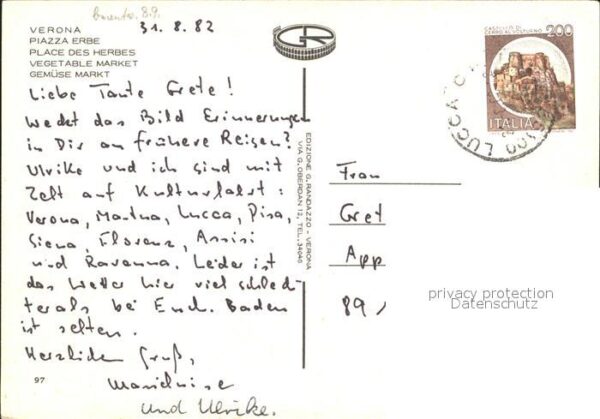 31. 8. 82
VERONA
PIAZZA ERBE
PLACE DES HERBES
VEGETABLE MARKET
GEMÜSE MARKT
Liebe Tante Grete!
Wecket das Bild Erinnerungen
in Dir an frühere Reisen?
Ulrike und ich sind mit
Zelt auf Kulturfahrt:
Verona, Mantua, Lucca, Pisa,
Siena, Florenz, Assisi
und Ravenna. Leider ist
das Wetter hier viel schlech-
ter als bei Euch. Baden
ist selten.
Herzlichen Gruß,
und Ulrike.
97
EDIZIONE G. RANDAZZO - VERONA
VIA G. OBERDAN 12, TEL. 34046
GR
CASTELLO DI
CERRO AL VOLTURNO
200
ITALIA
LUCCA
Frau
Gret
App
89
privacy protection
Datenschutz